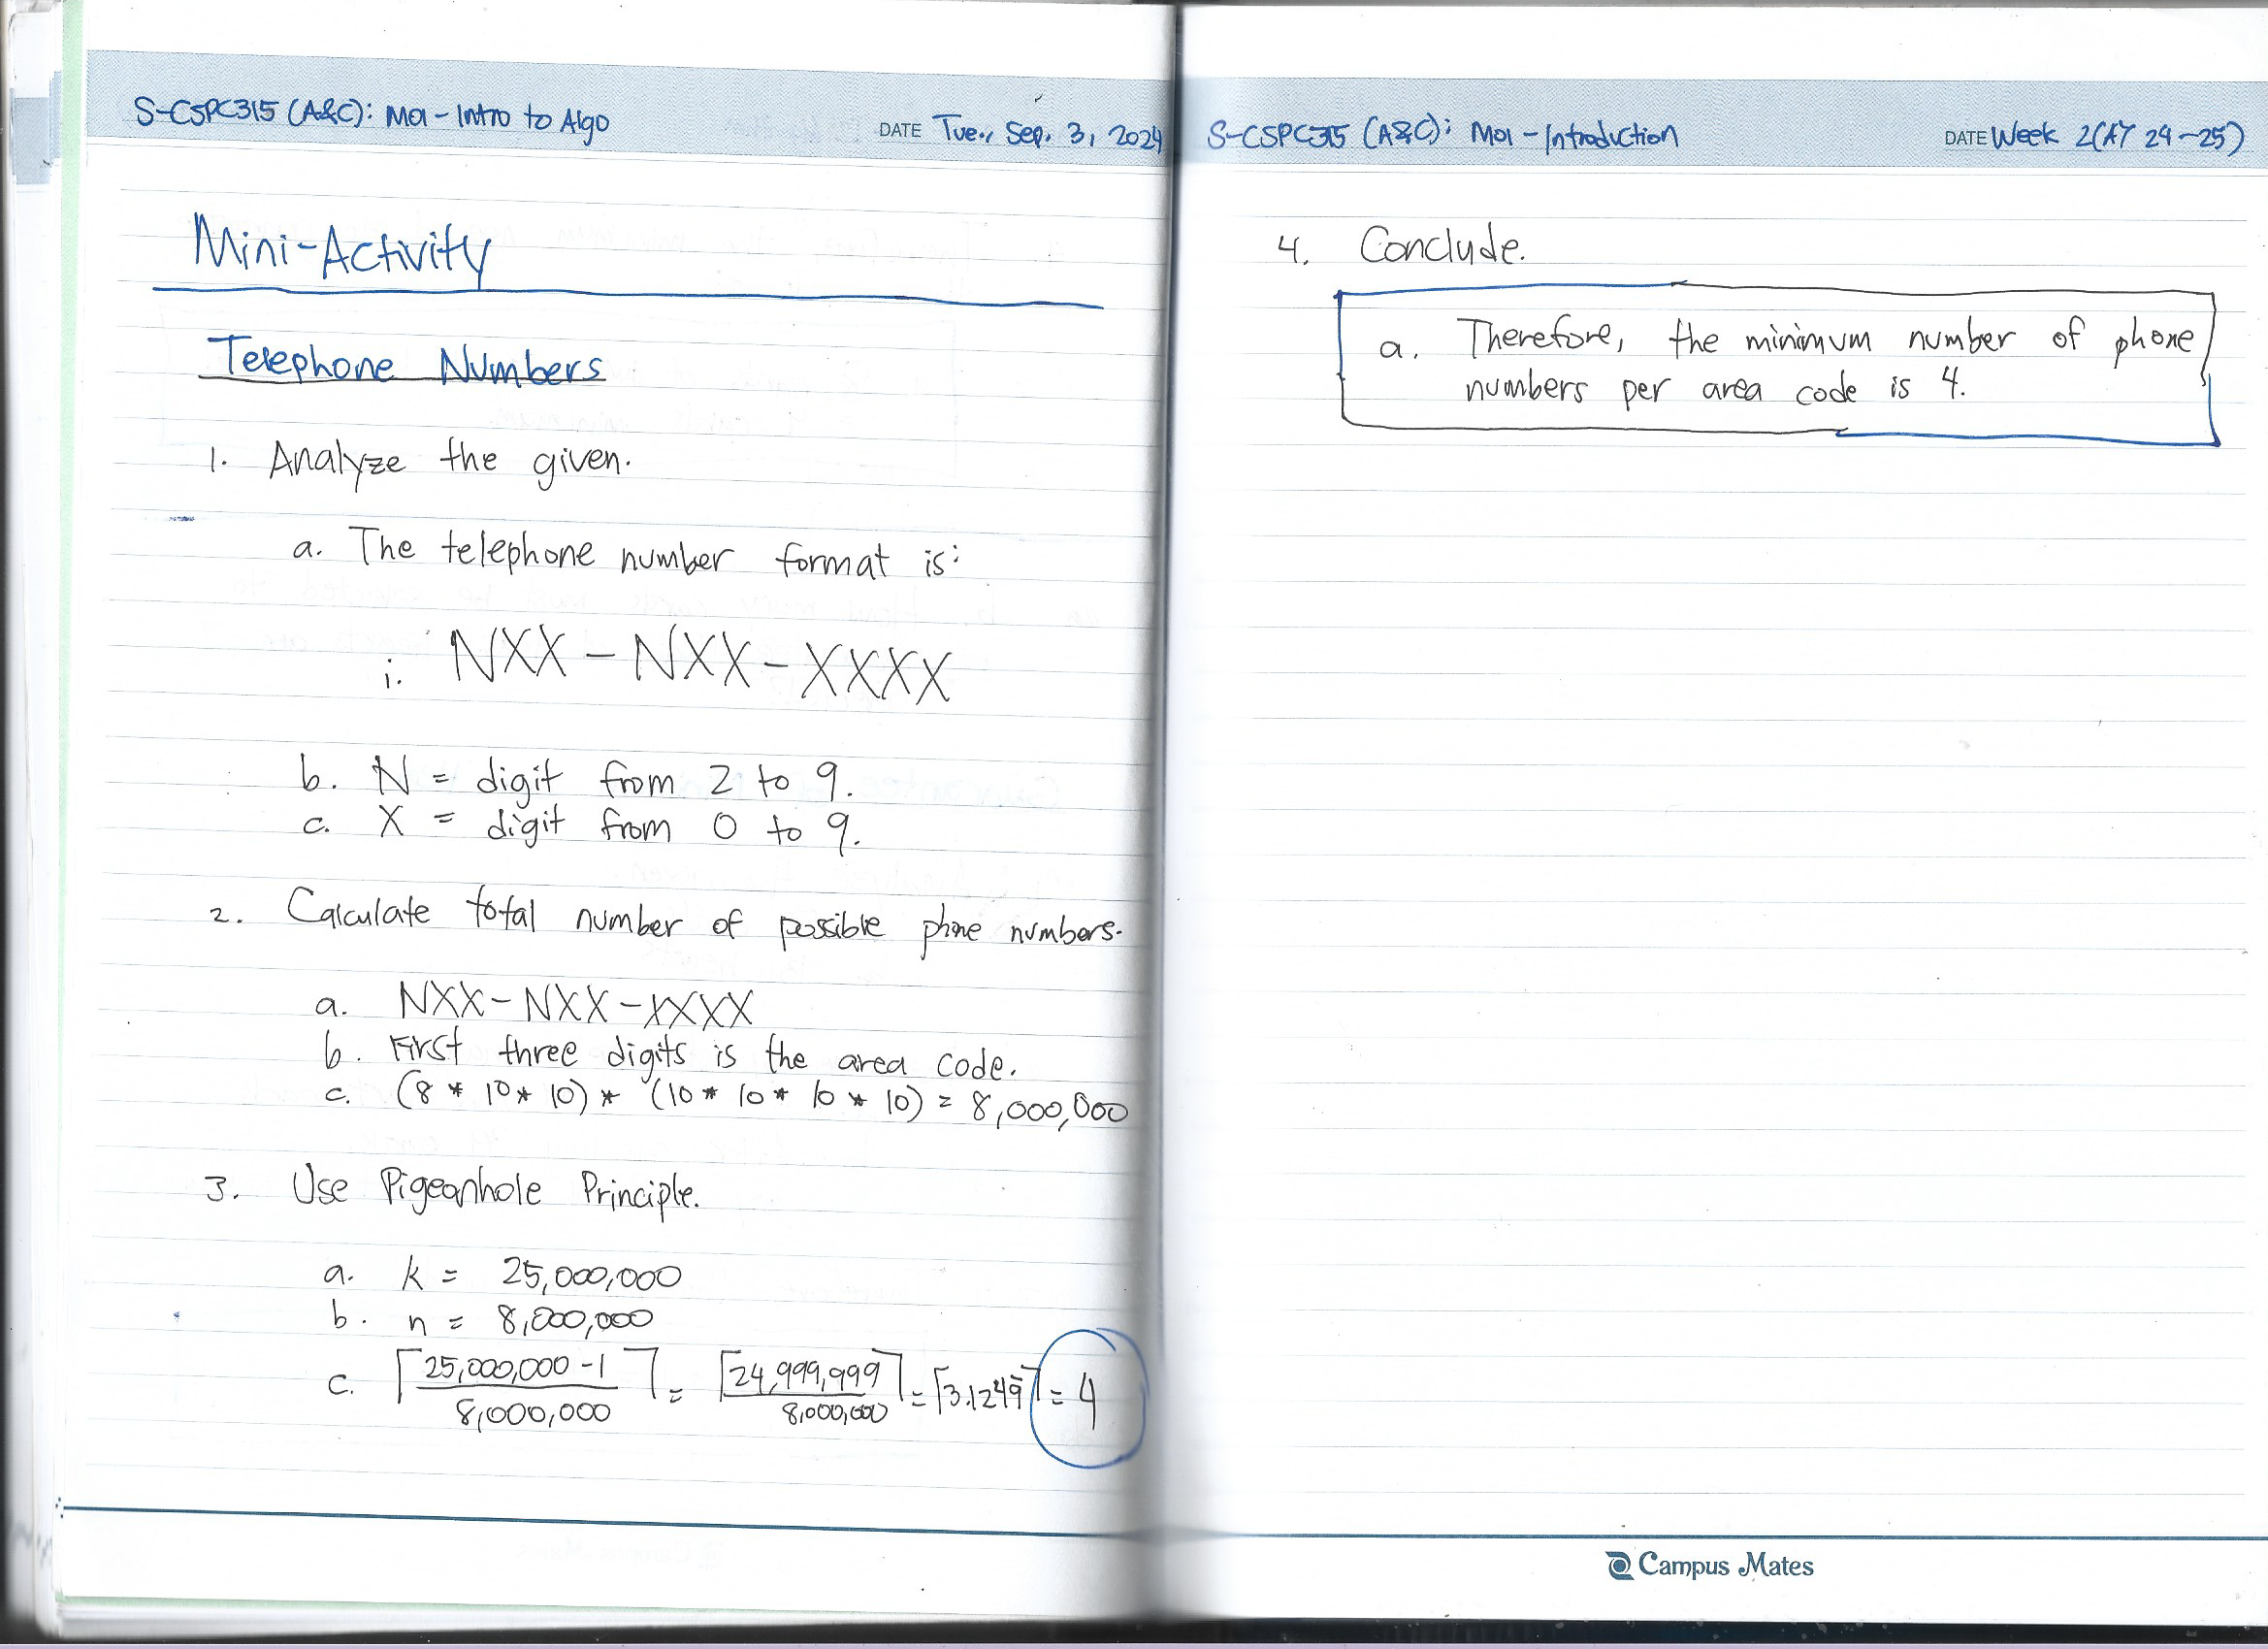 S-CSPC315 (A&C): M01 - Intro to Algo
DATE Tue., Sep. 3, 2024
Mini-Activity
Telephone Numbers
1. Analyze the given.
a. The telephone number format is:
i. NXX - NXX - XXXX
b. N = digit from 2 to 9.
c. X = digit from 0 to 9.
2. Calculate total number of possible phone numbers.
a. NXX - NXX - XXXX
b. First three digits is the area code.
c. (8 * 10 * 10) * (10 * 10 * 10 * 10) = 8,000,000
3. Use Pigeonhole Principle.
a. k = 25,000,000
b. n = 8,000,000
c. ⌈25,000,000 - 1 / 8,000,000⌉ = ⌈24,999,999 / 8,000,000⌉ = ⌈3.1249̅⌉ = 4
S-CSPC315 (A&C): M01 - Introduction
DATE Week 2 (AY 24-25)
4. Conclude.
a. Therefore, the minimum number of phone
numbers per area code is 4.
Campus Mates